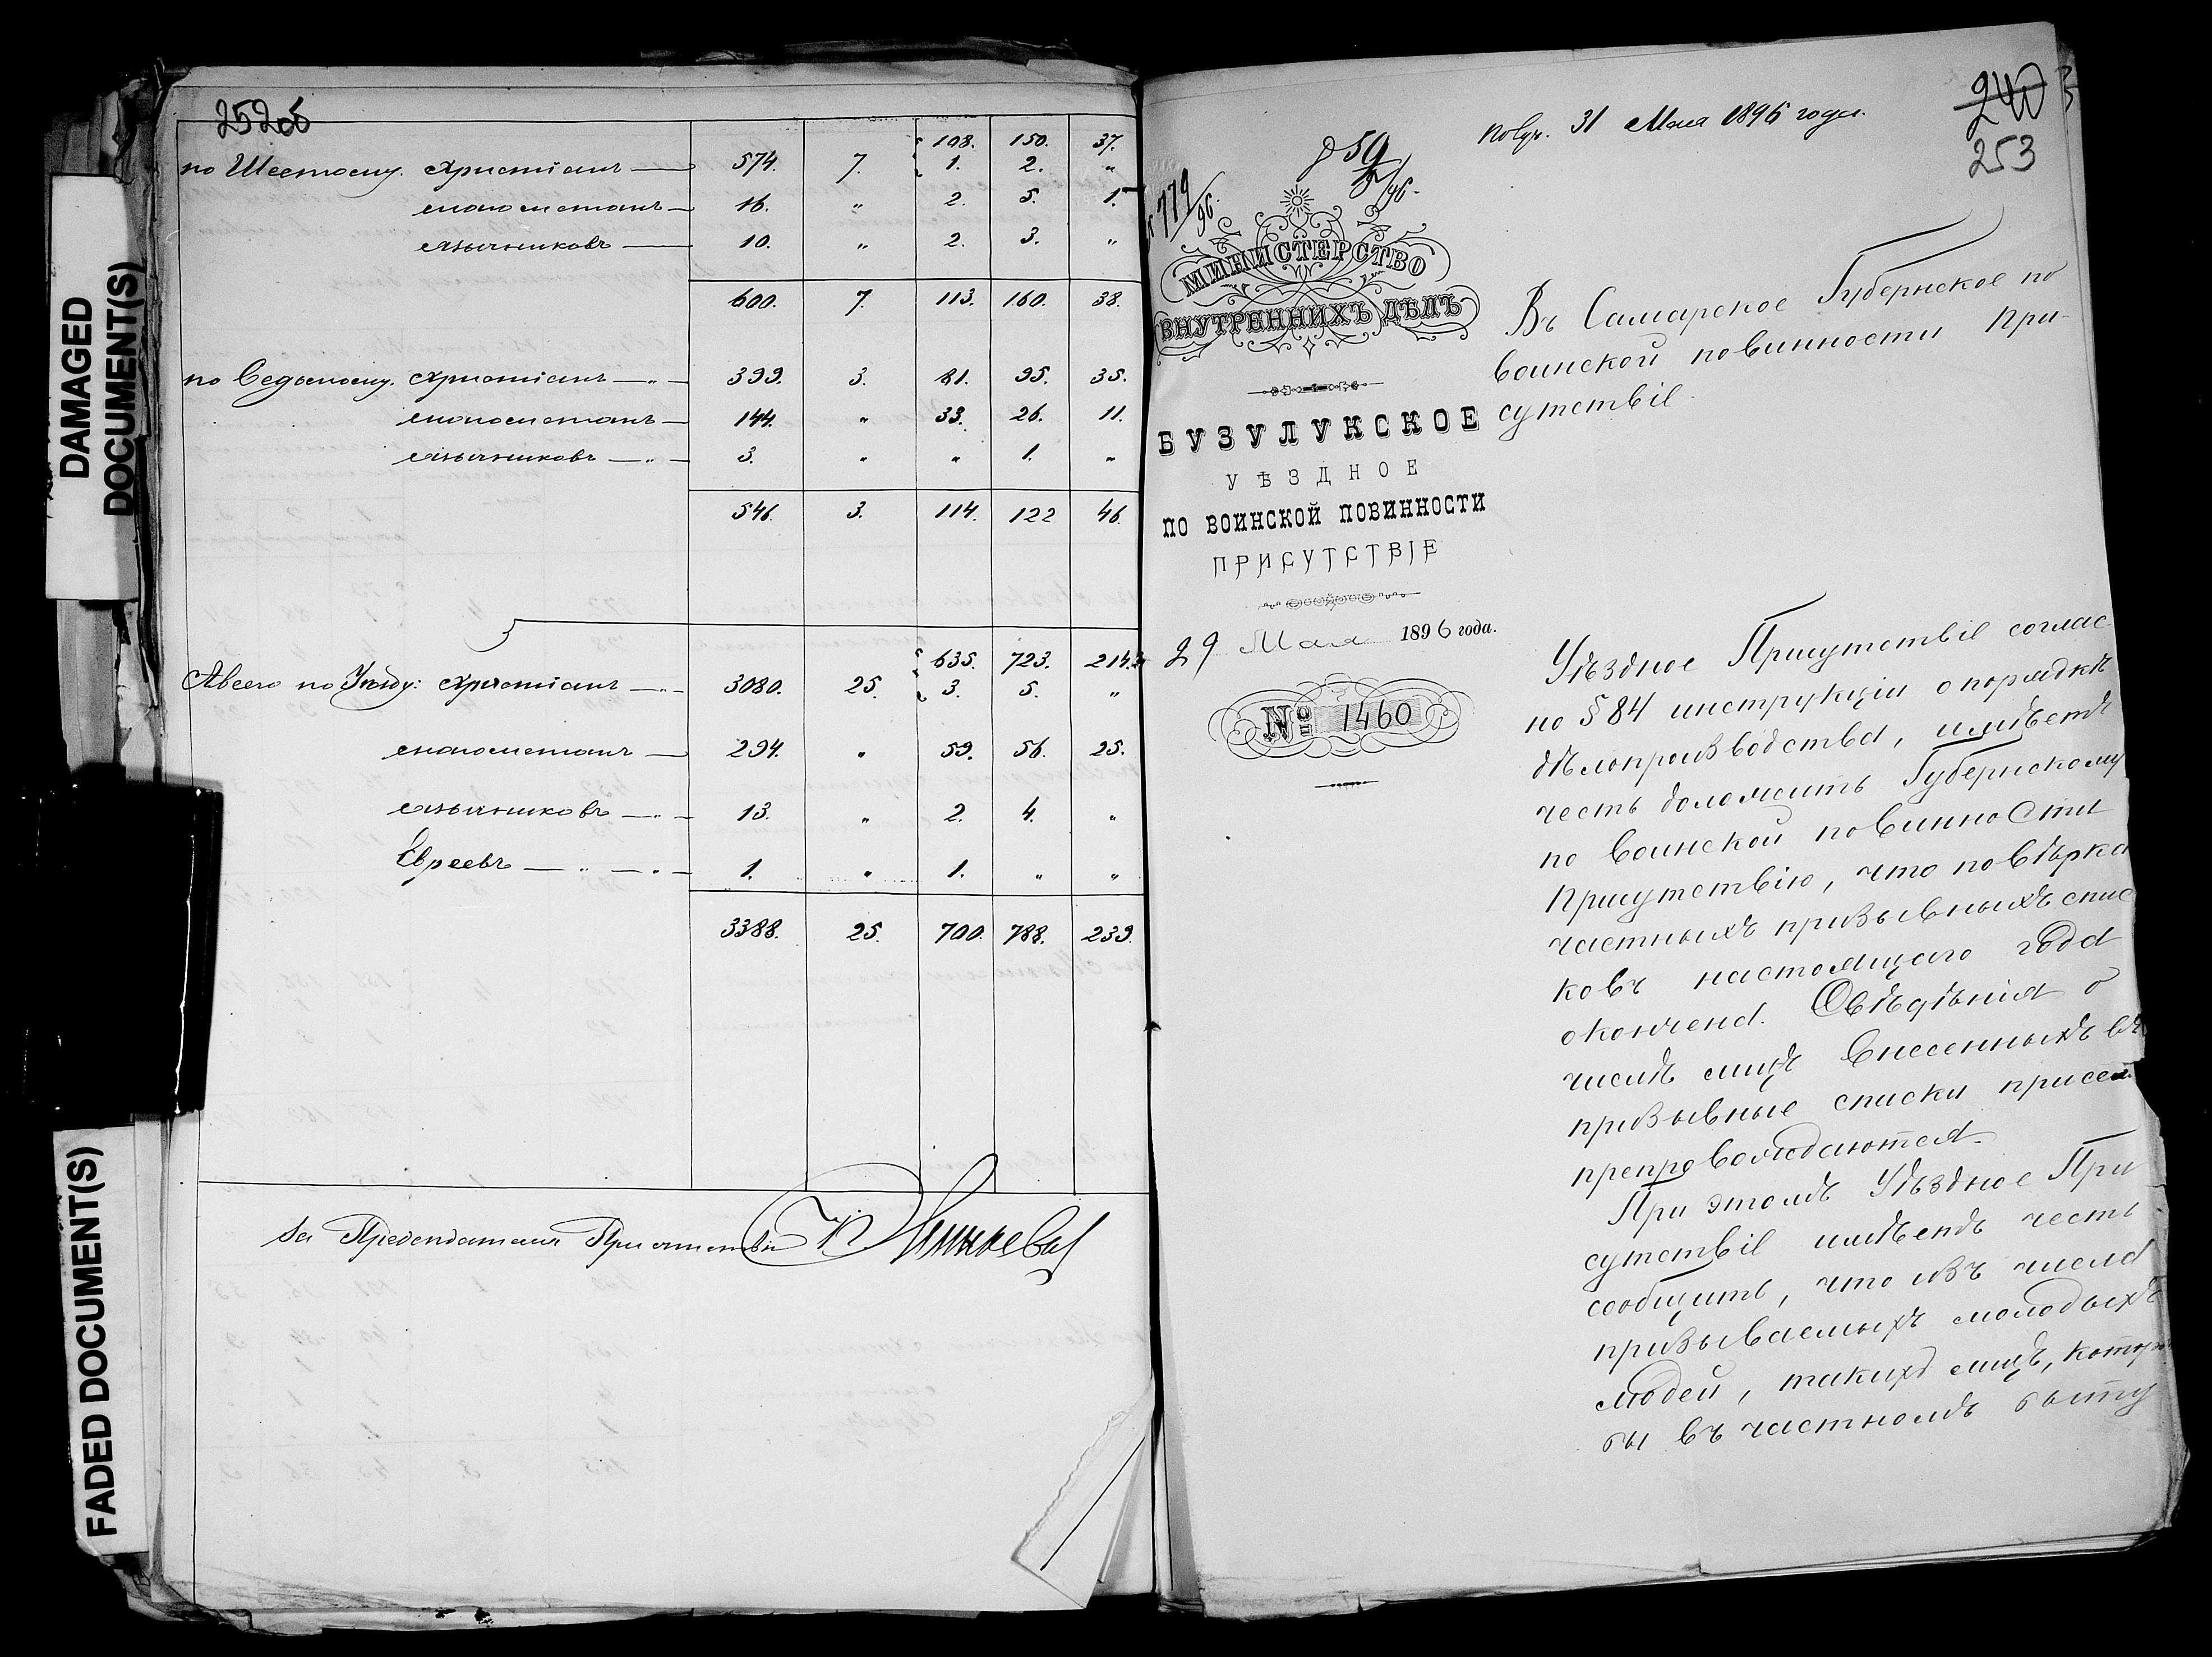 DAMAGED
DOCUMENT(S)
FADED DOCUMENT(S)
252об
108. 150. 37.
по Шестому. христіанъ — 574. 7. 1. 2. "
магометанъ — 16. " 2. 5. 1.
язычниковъ — 10. " 2. 3. "
600. 7. 113. 160. 38.
по Седьмому. христіанъ — " — 399. 3. 81. 95. 35.
магометанъ — 144. " 33. 26. 11.
язычниковъ — " — 3. " " 1. "
546. 3. 114. 122 46.
635. 723. 214.
А всего по Уѣзду: христіанъ — " — 3080. 25. 3. 5. "
магометанъ — 294. " 59. 56. 25.
язычниковъ — " — 13. " 2. 4. "
Евреевъ — " — " — 1. " 1. " "
3388. 25. 700. 788. 239.
За Предсѣдателя Присутствія
240
253
Получ. 31 Мая 1896 года.
МИНИСТЕРСТВО
ВНУТРЕННИХЪ ДѢЛЪ
БУЗУЛУКСКОЕ
УѢЗДНОЕ
ПО ВОИНСКОЙ ПОВИННОСТИ
ПРИСУТСТВІЕ
29 Мая 1896 года.
№ 1460
Въ Самарское Губернское по
воинской повинности При-
сутствіе
Уѣздное Присутствіе соглас
но § 84 инструкціи о порядкѣ
дѣлопроизводства, имѣетъ
честь доложить Губернскому
по воинской повинности
Присутствію, что повѣрка
частныхъ призывныхъ спис
ковъ настоящаго года
окончена. Свѣдѣнія о
числѣ лицъ внесенныхъ въ
призывные списки присемъ
препровождаются.
При этомъ Уѣздное При
сутствіе имѣетъ честь
сообщить, что изъ числа
призываемыхъ молодыхъ
людей, такихъ лицъ, котор
бы въ частномъ быту